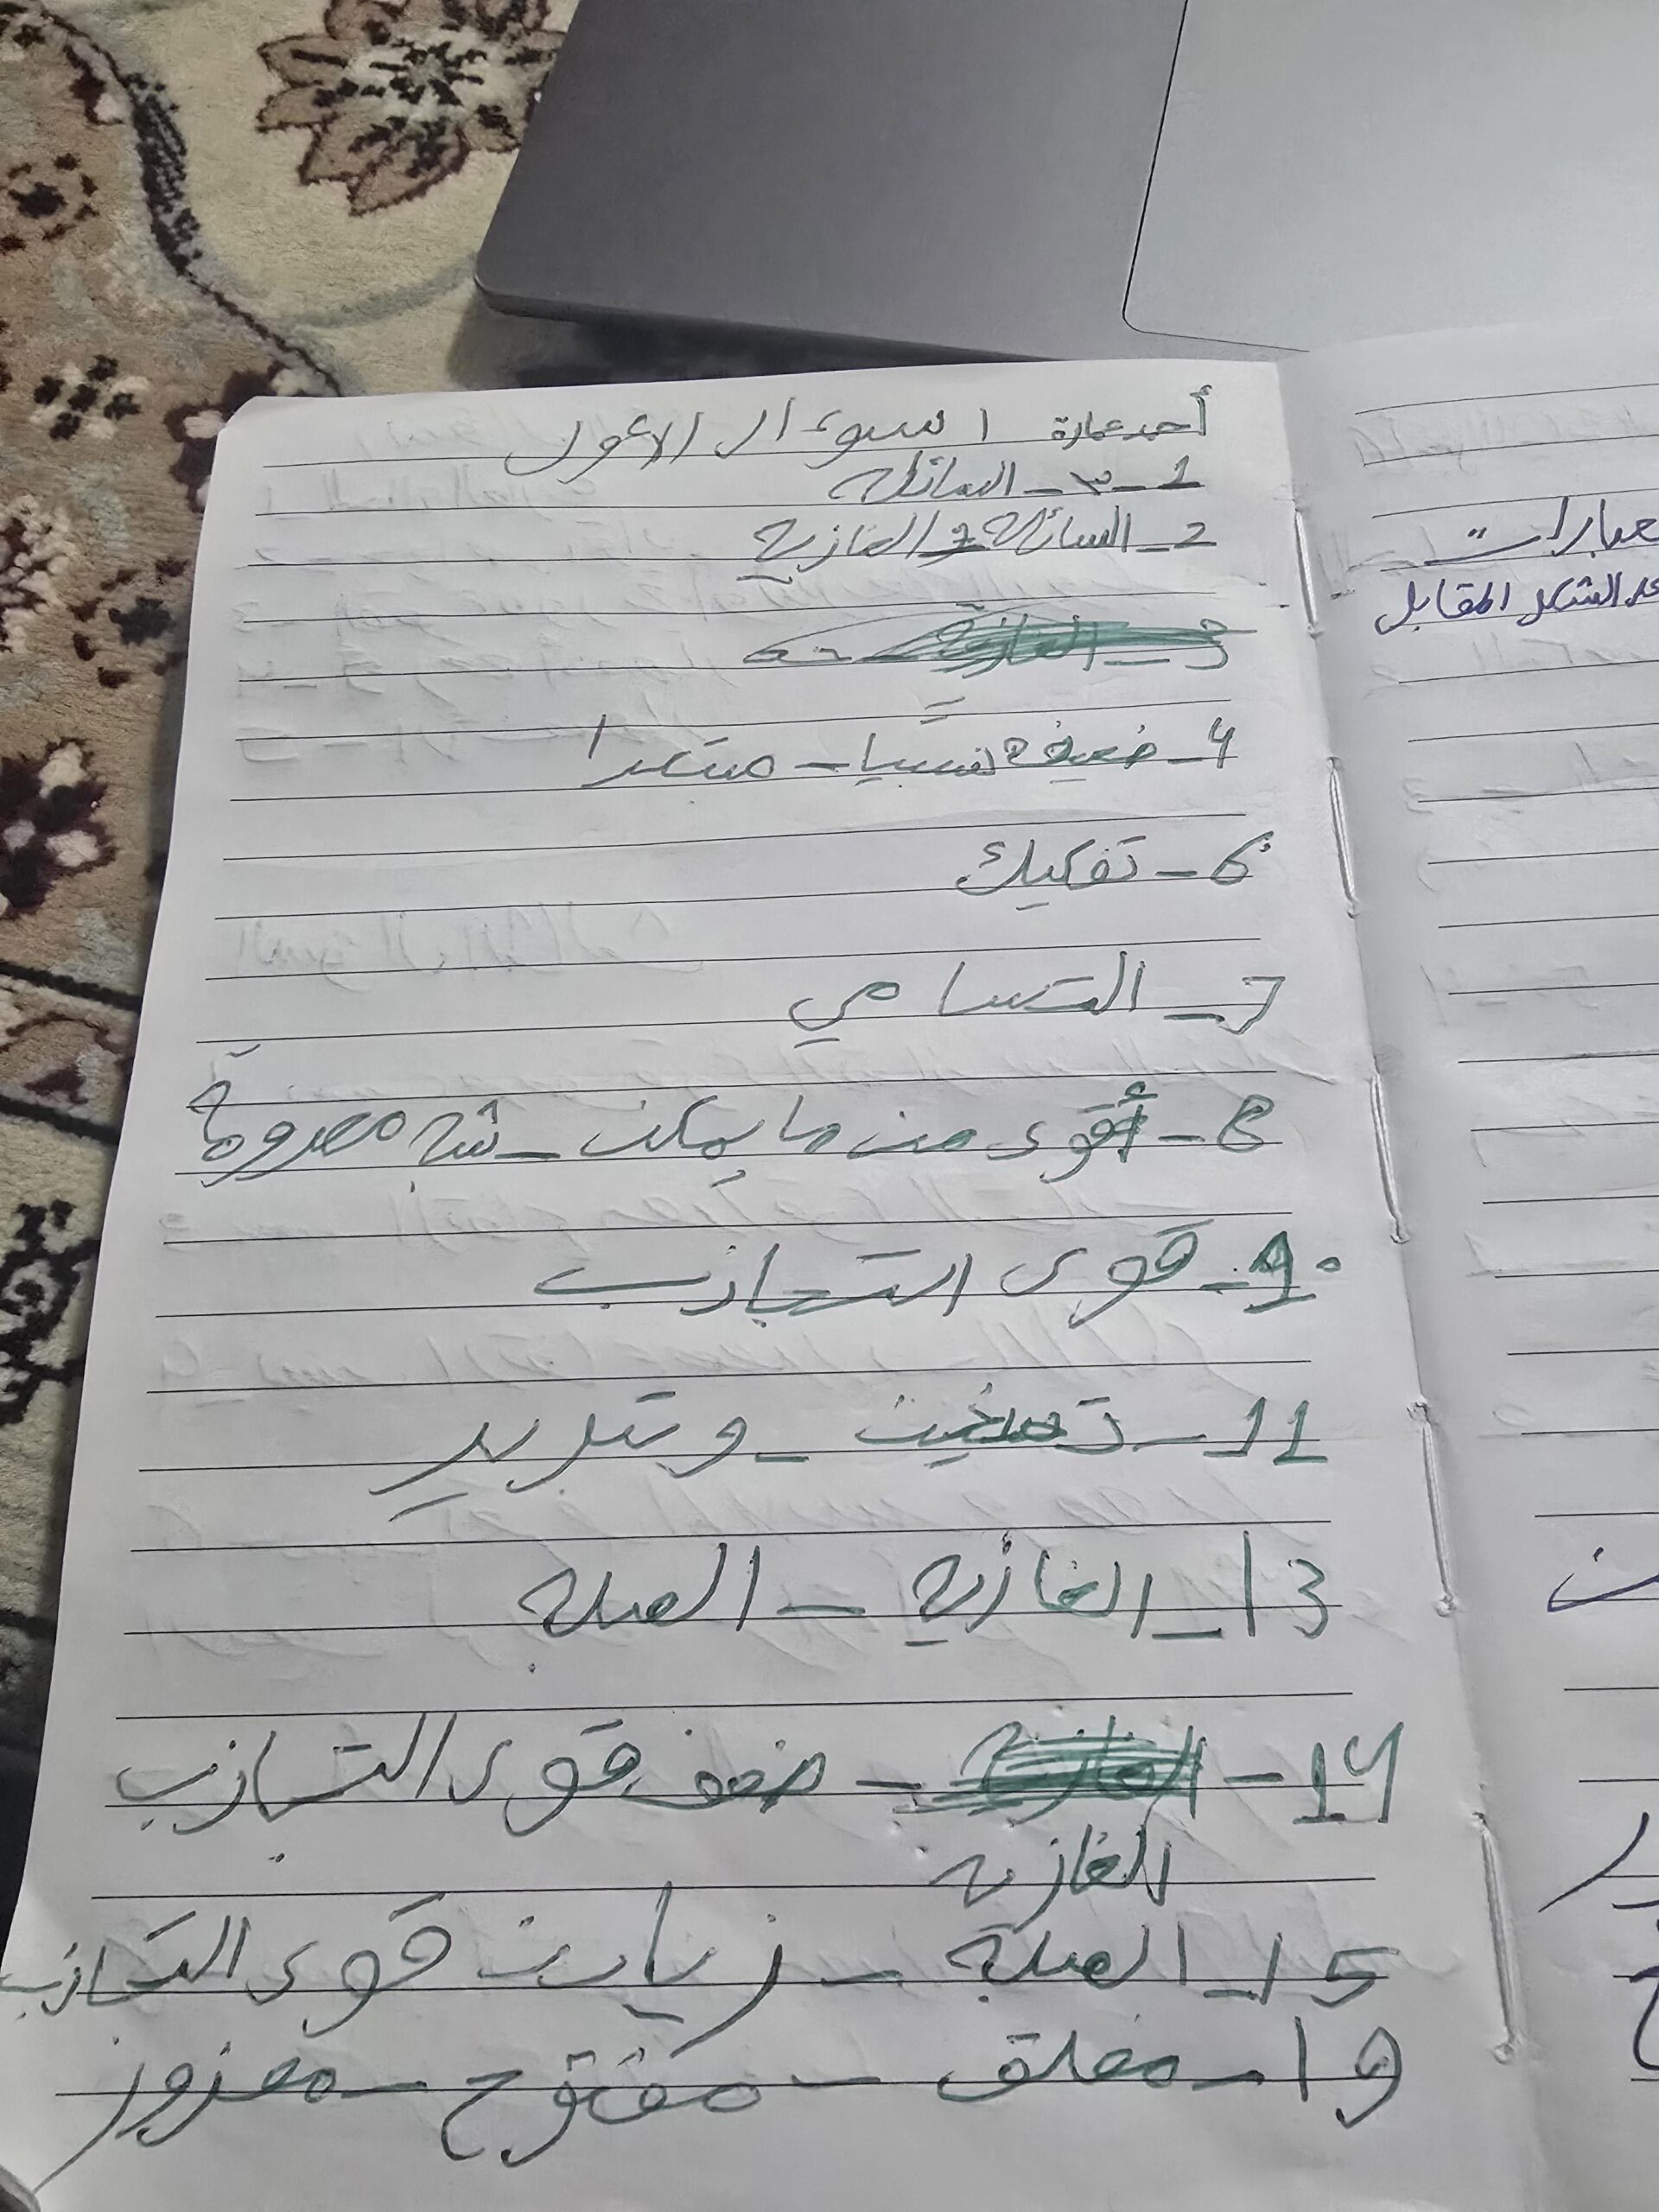 أحمد عمارة السوءال الأول
1-٣- السائلة
2- السائلة والغازية
3- الغازية
4- ضعيفة نسبيا - مبتعدا
6- تفكيك
7- التسامي
8- أقوى من ما يمكن - شبه معدومة
9- قوى التجاذب
11- تسخين - وتبريد
13- الغازية - الصلبة
14- الغازية - ضعف قوى التجاذب
الغازية
15- الصلبة - زيادت قوى التجاذب
19- مغلق - مفتوح - معزور
عبارات
الشكل المقابل